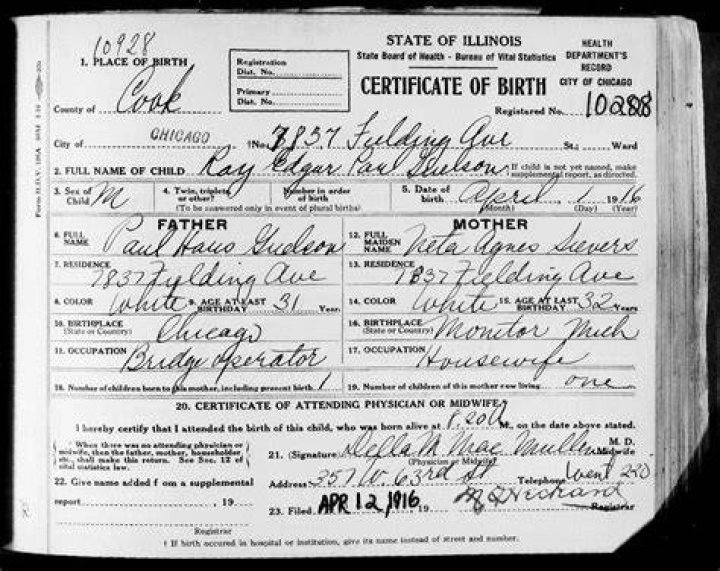 10928
STATE OF ILLINOIS
State Board of Health - Bureau of Vital Statistics
HEALTH DEPARTMENT'S RECORD CITY OF CHICAGO
CERTIFICATE OF BIRTH
1. PLACE OF BIRTH
Registration Dist. No.
Primary Dist. No.
County of Cook
Registered No. 10288
City of CHICAGO No. 7837 Fielding Ave St.; Ward
2. FULL NAME OF CHILD Ray Edgar Paul
If child is not yet named, make supplemental report, as directed.
3. Sex of Child M
4. Twin, triplets, or other? Number in order of birth
(To be answered only in event of plural births)
5. Date of birth April 1 1916
(Month) (Day) (Year)
FATHER
MOTHER
6. FULL NAME Paul Hans
12. FULL MAIDEN NAME Agnes Sievers
7. RESIDENCE 7837 Fielding Ave
13. RESIDENCE 7837 Fielding Ave
8. COLOR White 9. AGE AT LAST BIRTHDAY 31 Years
14. COLOR White 15. AGE AT LAST BIRTHDAY 32 Years
10. BIRTHPLACE (State or Country) Chicago
16. BIRTHPLACE (State or Country) Monitor Mich
11. OCCUPATION Bridge Operator
17. OCCUPATION Housewife
18. Number of children born to this mother, including present birth 1
19. Number of children of this mother now living one
20. CERTIFICATE OF ATTENDING PHYSICIAN OR MIDWIFE
I hereby certify that I attended the birth of this child, who was born alive at 8.20 M., on the date above stated.
When there was no attending physician or midwife, then the father, mother, householder, etc., shall make this return. See Sec. 12 of vital statistics law.
21. (Signature) Della M Mac Mullen M. D. Midwife
(Physician or Midwife)
Address 357 W. 63rd St Telephone Went 220
22. Give name added from a supplemental report , 19
23. Filed APR 12 1916, 19
Registrar
† If birth occured in hospital or institution, give its name instead of street and number.